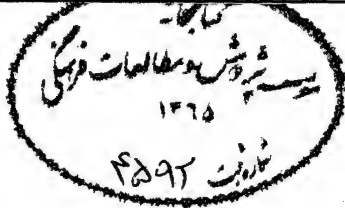 کتابخانه
پژوهش و مطالعات فرهنگی
۱۳۶۵
شماره ثبت ۴۵۹۲